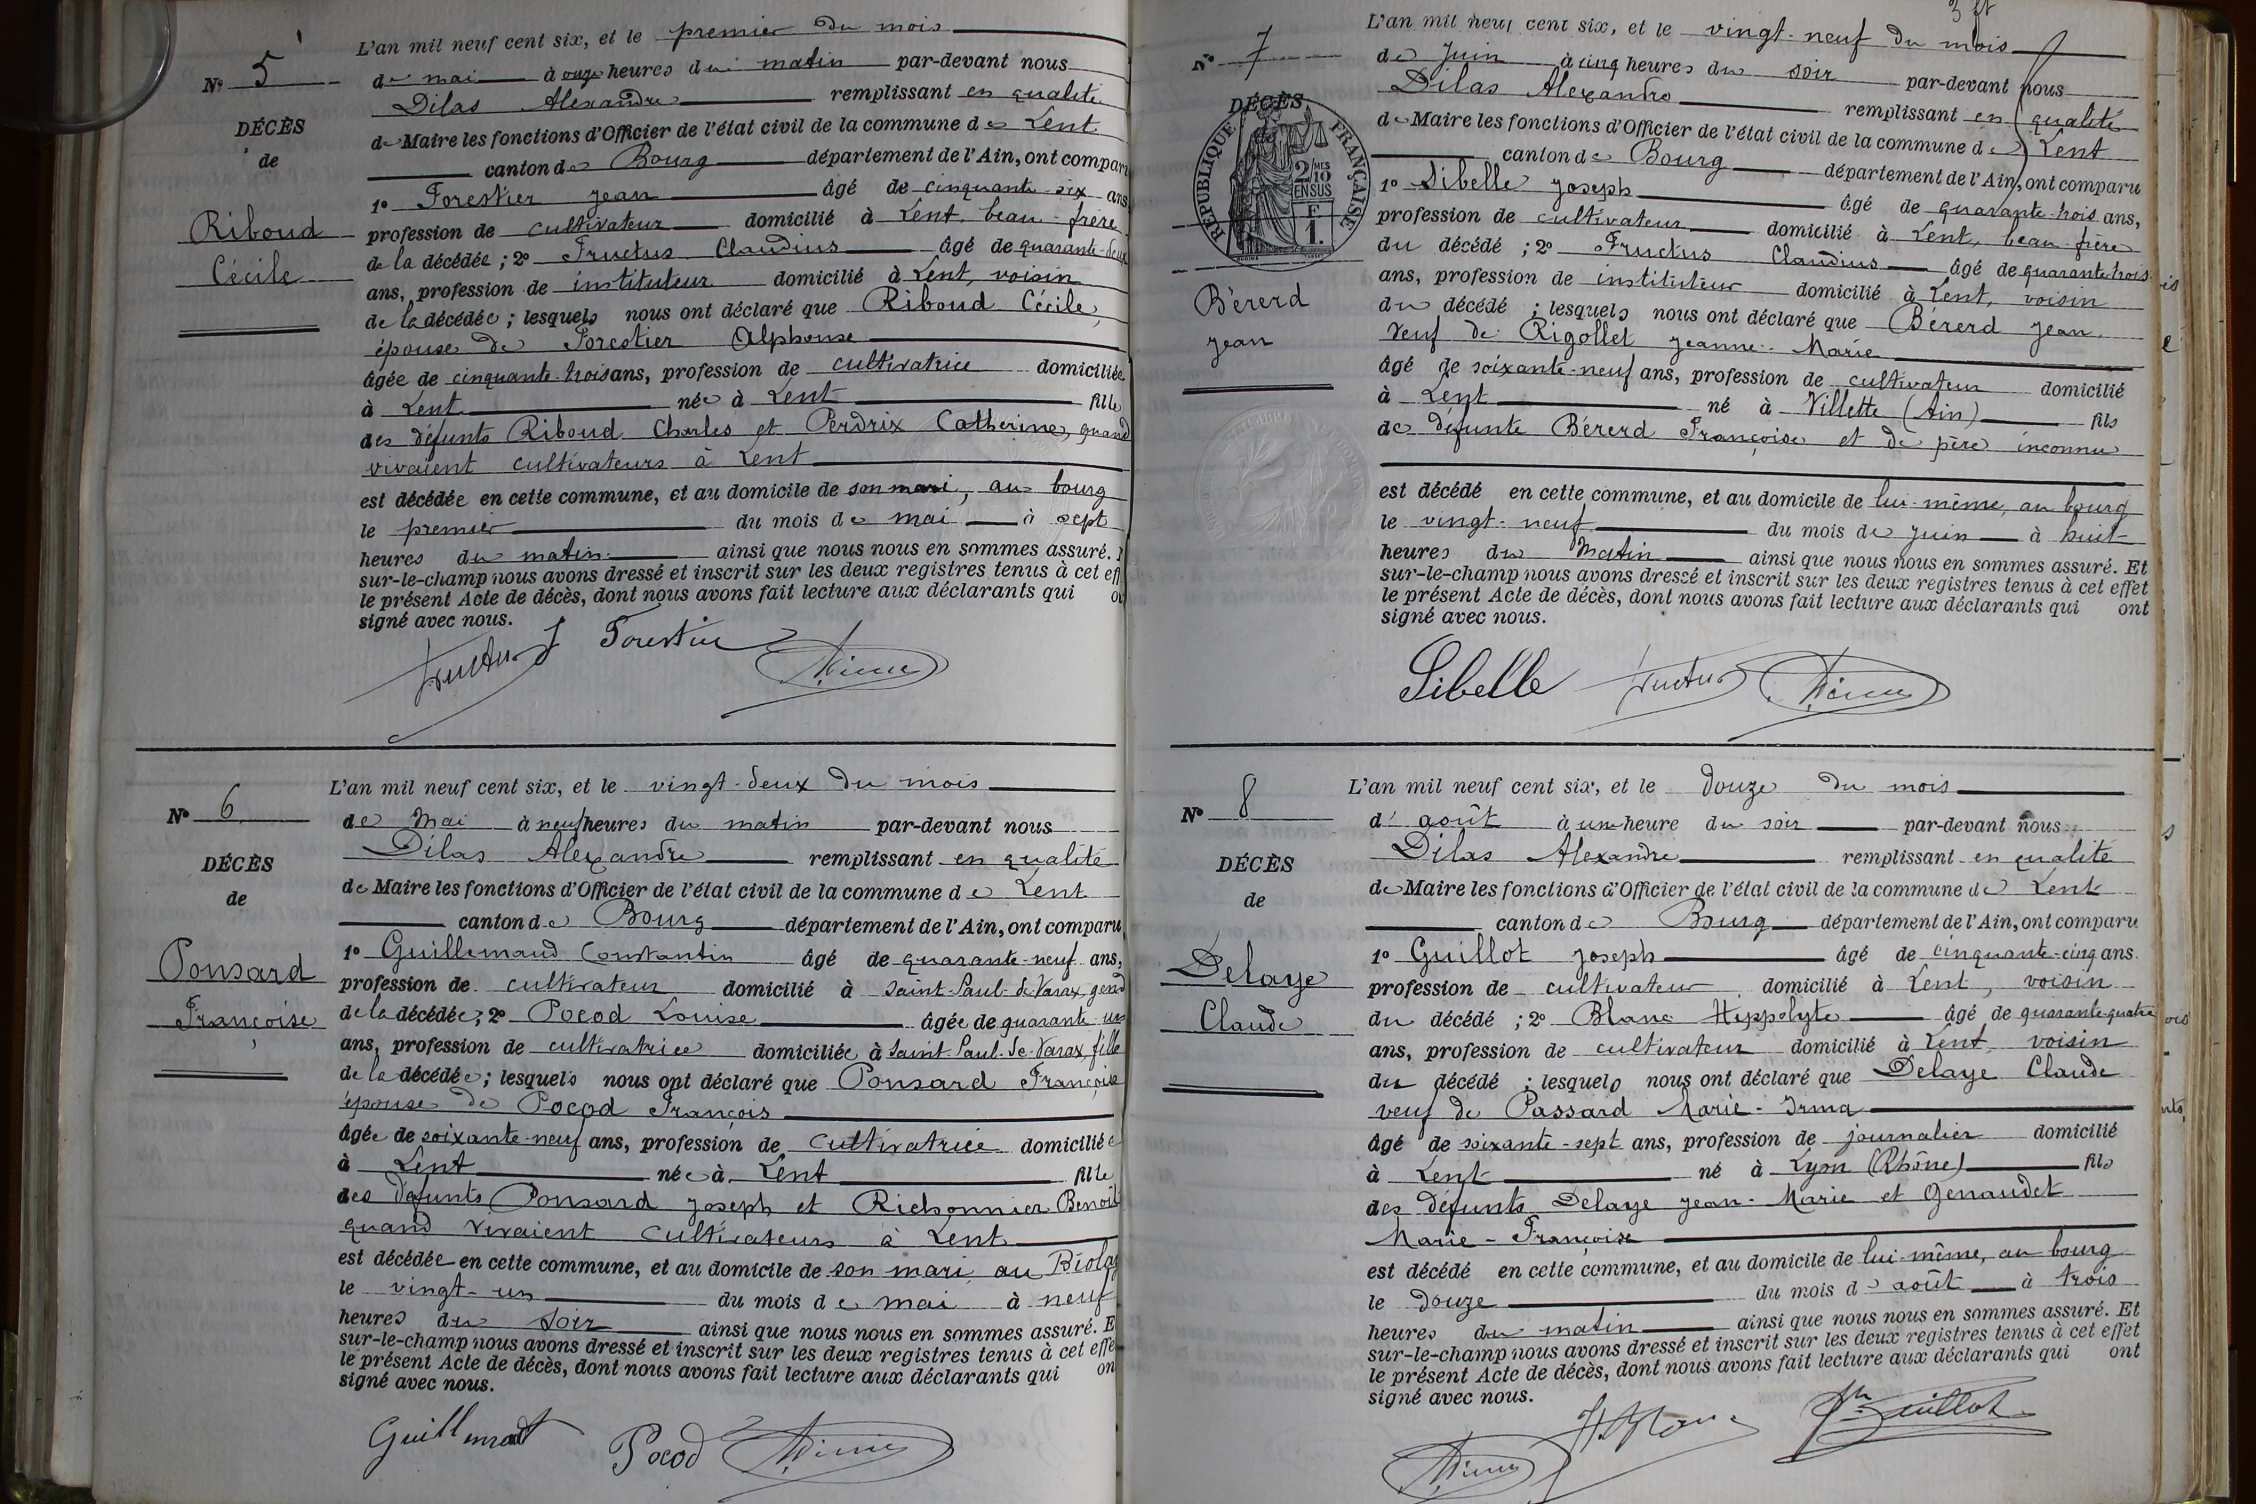 L'an mil neuf cent six, et le premier du mois
N° 5
de mai à onze heures du matin par-devant nous
Dilas Alexandre remplissant en qualité
DÉCÈS
de Maire les fonctions d'Officier de l'état civil de la commune de Lent
de
canton de Bourg département de l'Ain, ont comparu
1° Forestier Jean âgé de cinquante-six ans
Riboud
profession de cultivateur domicilié à Lent, beau-frère
de la décédée ; 2° Fructus Claudius âgé de quarante-deux
Cécile
ans, profession de instituteur domicilié à Lent, voisin
de la décédée ; lesquels nous ont déclaré que Riboud Cécile,
épouse de Forestier Alphonse
âgée de cinquante-trois ans, profession de cultivatrice domiciliée
à Lent née à Lent fille
des défunts Riboud Charles et Perdrix Catherine, quand
vivaient cultivateurs à Lent
est décédée en cette commune, et au domicile de son mari, au bourg
le premier du mois de mai à sept
heures du matin ainsi que nous nous en sommes assuré.
sur-le-champ nous avons dressé et inscrit sur les deux registres tenus à cet eff
le présent Acte de décès, dont nous avons fait lecture aux déclarants qui on
signé avec nous.
Fructus J Forestier
L'an mil neuf cent six, et le vingt-deux du mois
N° 6
de Mai à neuf heures du matin par-devant nous
Dilas Alexandre remplissant en qualité
DÉCÈS
de Maire les fonctions d'Officier de l'état civil de la commune de Lent
de
canton de Bourg département de l'Ain, ont comparu
1° Guillemaud Constantin âgé de quarante-neuf ans,
Ponsard
profession de cultivateur domicilié à Saint-Paul-de-Varax, gend
Françoise
de la décédée ; 2° Pocod Louise âgée de quarante-un
ans, profession de cultivatrice domiciliée à Saint-Paul-de-Varax, fille
de la décédée ; lesquels nous ont déclaré que Ponsard Françoise
épouse de Pocod François
âgée de soixante-neuf ans, profession de cultivatrice domiciliée
à Lent née à Lent fille
des défunts Ponsard Joseph et Richonnier Benoît
quand vivaient cultivateurs à Lent
est décédée en cette commune, et au domicile de son mari au Biolay
le vingt-un du mois de mai à neuf
heures du soir ainsi que nous nous en sommes assuré. E
sur-le-champ nous avons dressé et inscrit sur les deux registres tenus à cet effe
le présent Acte de décès, dont nous avons fait lecture aux déclarants qui on
signé avec nous.
Pocod
3 ft
L'an mil neuf cent six, et le vingt-neuf du mois
N° 7
de Juin à cinq heures du soir par-devant nous
Dilas Alexandre remplissant en qualité
DÉCÈS
RÉPUBLIQUE FRANÇAISE
2/10 EN SUS
F 1.
de Maire les fonctions d'Officier de l'état civil de la commune de Lent
canton de Bourg département de l'Ain, ont comparu
1° Sibelle Joseph âgé de quarante-trois ans,
profession de cultivateur domicilié à Lent, beau-frère
du décédé ; 2° Fructus Claudius âgé de quarante-trois
Bérerd
ans, profession de instituteur domicilié à Lent, voisin
du décédé ; lesquels nous ont déclaré que Bérerd Jean
Jean
veuf de Rigollet Jeanne-Marie
âgé de soixante-neuf ans, profession de cultivateur domicilié
à Lent né à Villette (Ain) fils
de défunte Bérerd Françoise et de père inconnu
est décédé en cette commune, et au domicile de lui-même, au bourg
le vingt-neuf du mois de juin à huit
heures du matin ainsi que nous nous en sommes assuré. Et
sur-le-champ nous avons dressé et inscrit sur les deux registres tenus à cet effet
le présent Acte de décès, dont nous avons fait lecture aux déclarants qui ont
signé avec nous.
Sibelle Fructus
L'an mil neuf cent six, et le douze du mois
N° 8
d'août à une heure du soir par-devant nous
Dilas Alexandre remplissant en qualité
DÉCÈS
de Maire les fonctions d'Officier de l'état civil de la commune de Lent
de
canton de Bourg département de l'Ain, ont comparu
1° Guillot Joseph âgé de cinquante-cinq ans
Delaye
profession de cultivateur domicilié à Lent, voisin
Claude
du décédé ; 2° Blanc Hippolyte âgé de quarante-quatre
ans, profession de cultivateur domicilié à Lent, voisin
du décédé ; lesquels nous ont déclaré que Delaye Claude
veuf de Passard Marie-Irma
âgé de soixante-sept ans, profession de journalier domicilié
à Lent né à Lyon (Rhône) fils
des défunts Delaye Jean-Marie et Genaudet
Marie-Françoise
est décédé en cette commune, et au domicile de lui-même, au bourg
le douze du mois d'août à trois
heures du matin ainsi que nous nous en sommes assuré. Et
sur-le-champ nous avons dressé et inscrit sur les deux registres tenus à cet effet
le présent Acte de décès, dont nous avons fait lecture aux déclarants qui ont
signé avec nous.
H. Blanc Jh Guillot